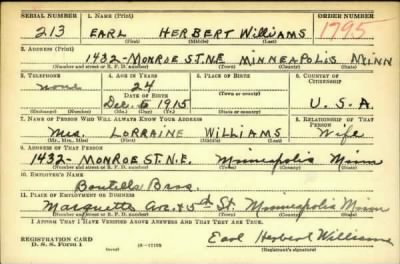 SERIAL NUMBER 1. NAME (Print) ORDER NUMBER
213 EARL HERBERT WILLIAMS 1795
(First) (Middle) (Last)
2. ADDRESS (Print)
1432-MONROE ST. N.E. MINNEAPOLIS MINN
(Number and street or R. F. D. number) (Town) (County) (State)
3. TELEPHONE 4. AGE IN YEARS 5. PLACE OF BIRTH 6. COUNTRY OF CITIZENSHIP
none 24
DATE OF BIRTH (Town or county)
Dec. 6 1915 U. S. A.
(Exchange) (Number) (Mo.) (Day) (Yr.) (State or country)
7. NAME OF PERSON WHO WILL ALWAYS KNOW YOUR ADDRESS 8. RELATIONSHIP OF THAT PERSON
Mrs. LORRAINE WILLIAMS Wife
(Mr., Mrs., Miss) (First) (Middle) (Last)
9. ADDRESS OF THAT PERSON
1432- MONROE ST. N.E. Minneapolis Minn
(Number and street or R. F. D. number) (Town) (County) (State)
10. EMPLOYER'S NAME
Boutells Bros.
11. PLACE OF EMPLOYMENT OR BUSINESS
Marquette Ave. & 5th St. Minneapolis Minn
(Number and street or R. F. D. number) (Town) (County) (State)
I AFFIRM THAT I HAVE VERIFIED ABOVE ANSWERS AND THAT THEY ARE TRUE.
REGISTRATION CARD
D. S. S. Form 1 (over) 16-17105 Earl Herbert Williams
(Registrant's signature)